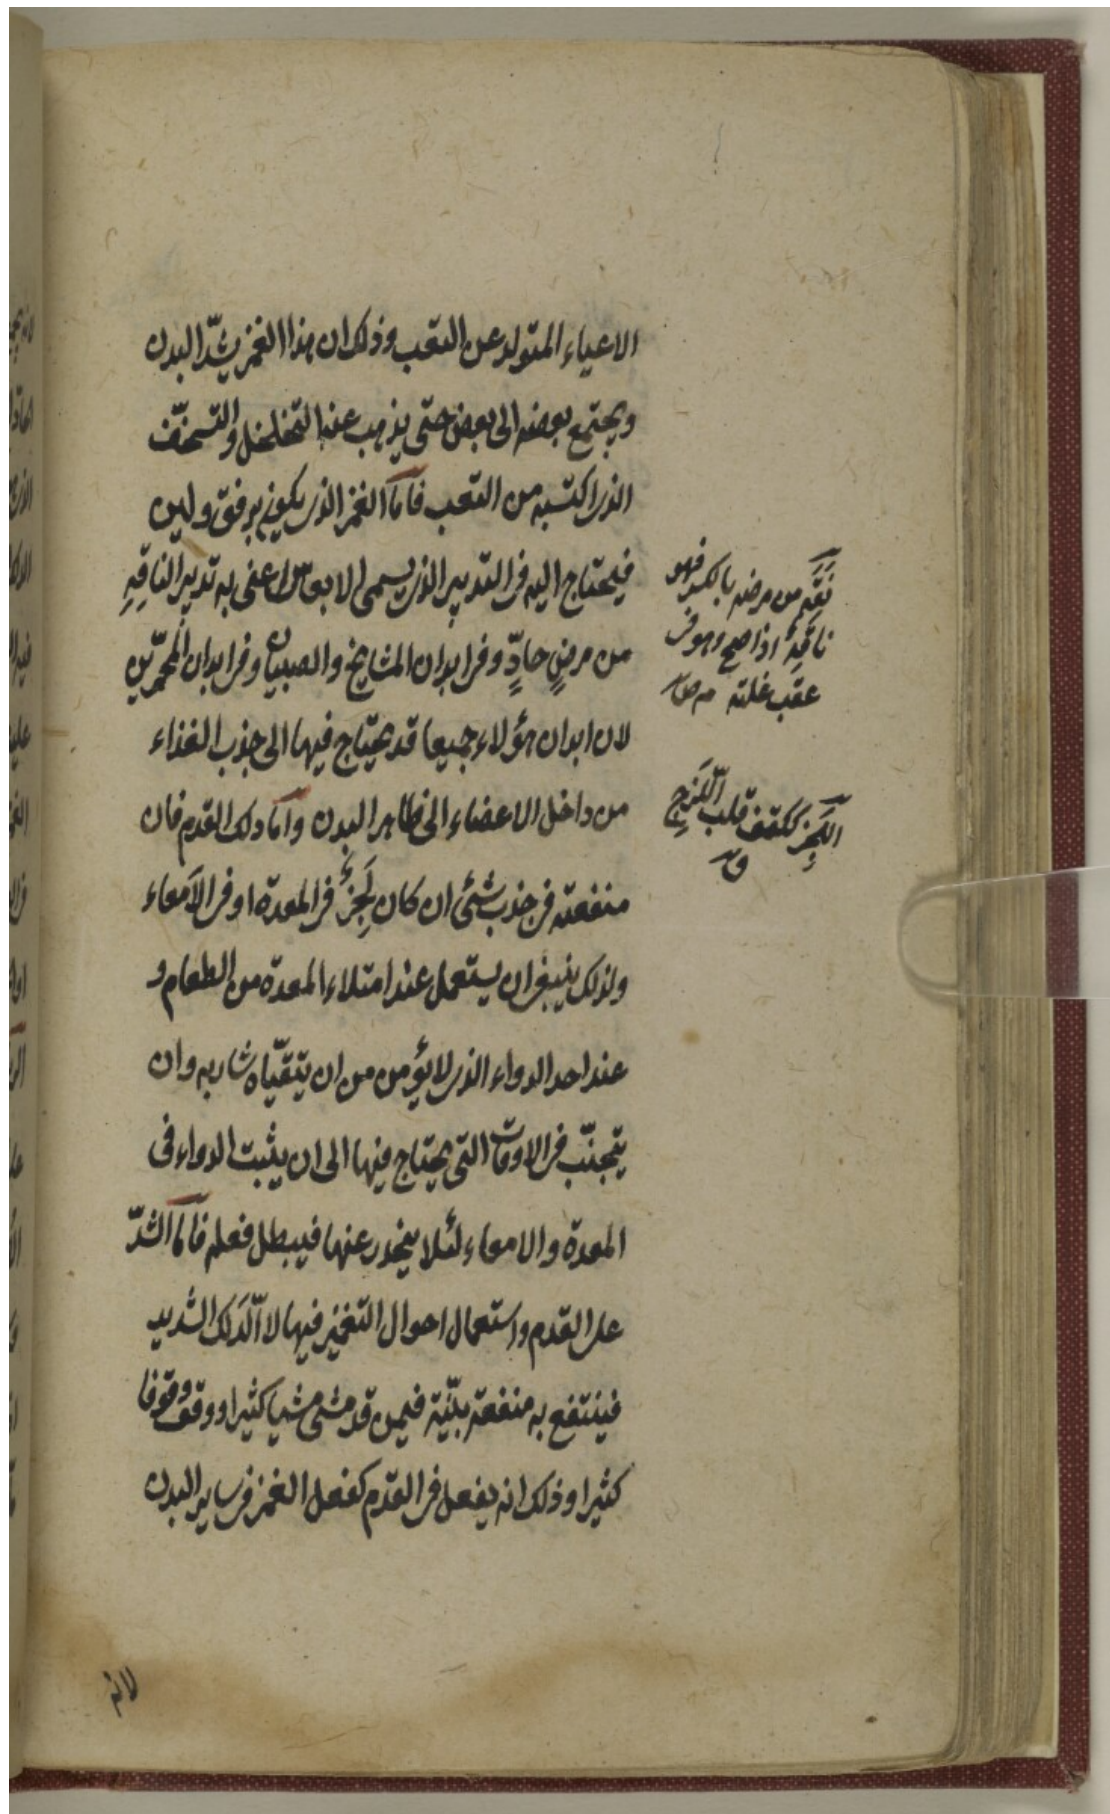 الاعياء المتولد عن التعب وذلك ان هذا الغمز يشدّ البدن
ويجتمع بعضه الى بعض حتى يذهب عنه التخلخل والتسخّف
الذى اكتسبه من التعب فامّا الغمز الذى يكون برفق ولين
فيحتاج اليه فى التدبير الذى يسمى اعنى به تدبير الناقِهِ
من مرضٍ حادٍّ وفى ابدان المشايخ والصبيان وفى ابدان
لان ابدان هؤلاء جميعا قد يحتاج فيها الى جذب الغذاء
من داخل الاعضاء الى ظاهر البدن وامّا دلك القدم فان
منفعته فى جذب شئ ان كان لَجِزٌ فى المعدة او فى الاَمعاء
ولذلك ينبغى ان يستعمل عند امتلاء المعدة من الطعام و
عند احد الدواء الذى لا يؤمن من ان يتقيّاه شاربه وان
يتجنّب فى الاوقات التى يحتاج فيها الى ان يثبت الدواء فى
المعدة والامعاء لئلا ينحدر عنها فيبطل فعله فامّا الشدّ
على القدم واستعمال احوال التغميز فيها لا الدَلك الشديد
فينتفع به منفعة بيّنة فيمن قد مشى مشيا كثيرا او وقف وقوفا
كثيرا وذلك انه يفعل فى القدم كفعل الغمز فى ساير البدن
نَقِهَ من مرضه بالكسر فهو
ناقِهٌ اذا صح وهو فى
عقب علته
اللَجِز ككتف قلب اللَّزِج
ق